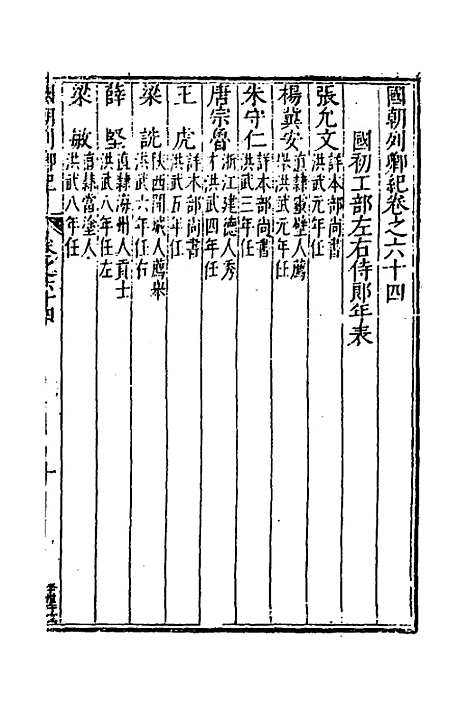 國朝列卿紀卷之六十四
國初工部左右侍郎年表
張允文 詳本部尚書
洪武元年任
楊冀安 直隸靈壁人薦
舉洪武元年任
朱守仁 詳本部尚書
洪武三年任
唐宗魯 浙江建德人秀
才洪武四年任
王虎 詳本部尚書
洪武五年任
梁詵 陝西開城人薦舉
洪武六年任右
薛堅 直隸海州人貢士
洪武八年任左
梁敏 直隸當塗人
洪武八年任
國朝列卿紀 卷之六十四